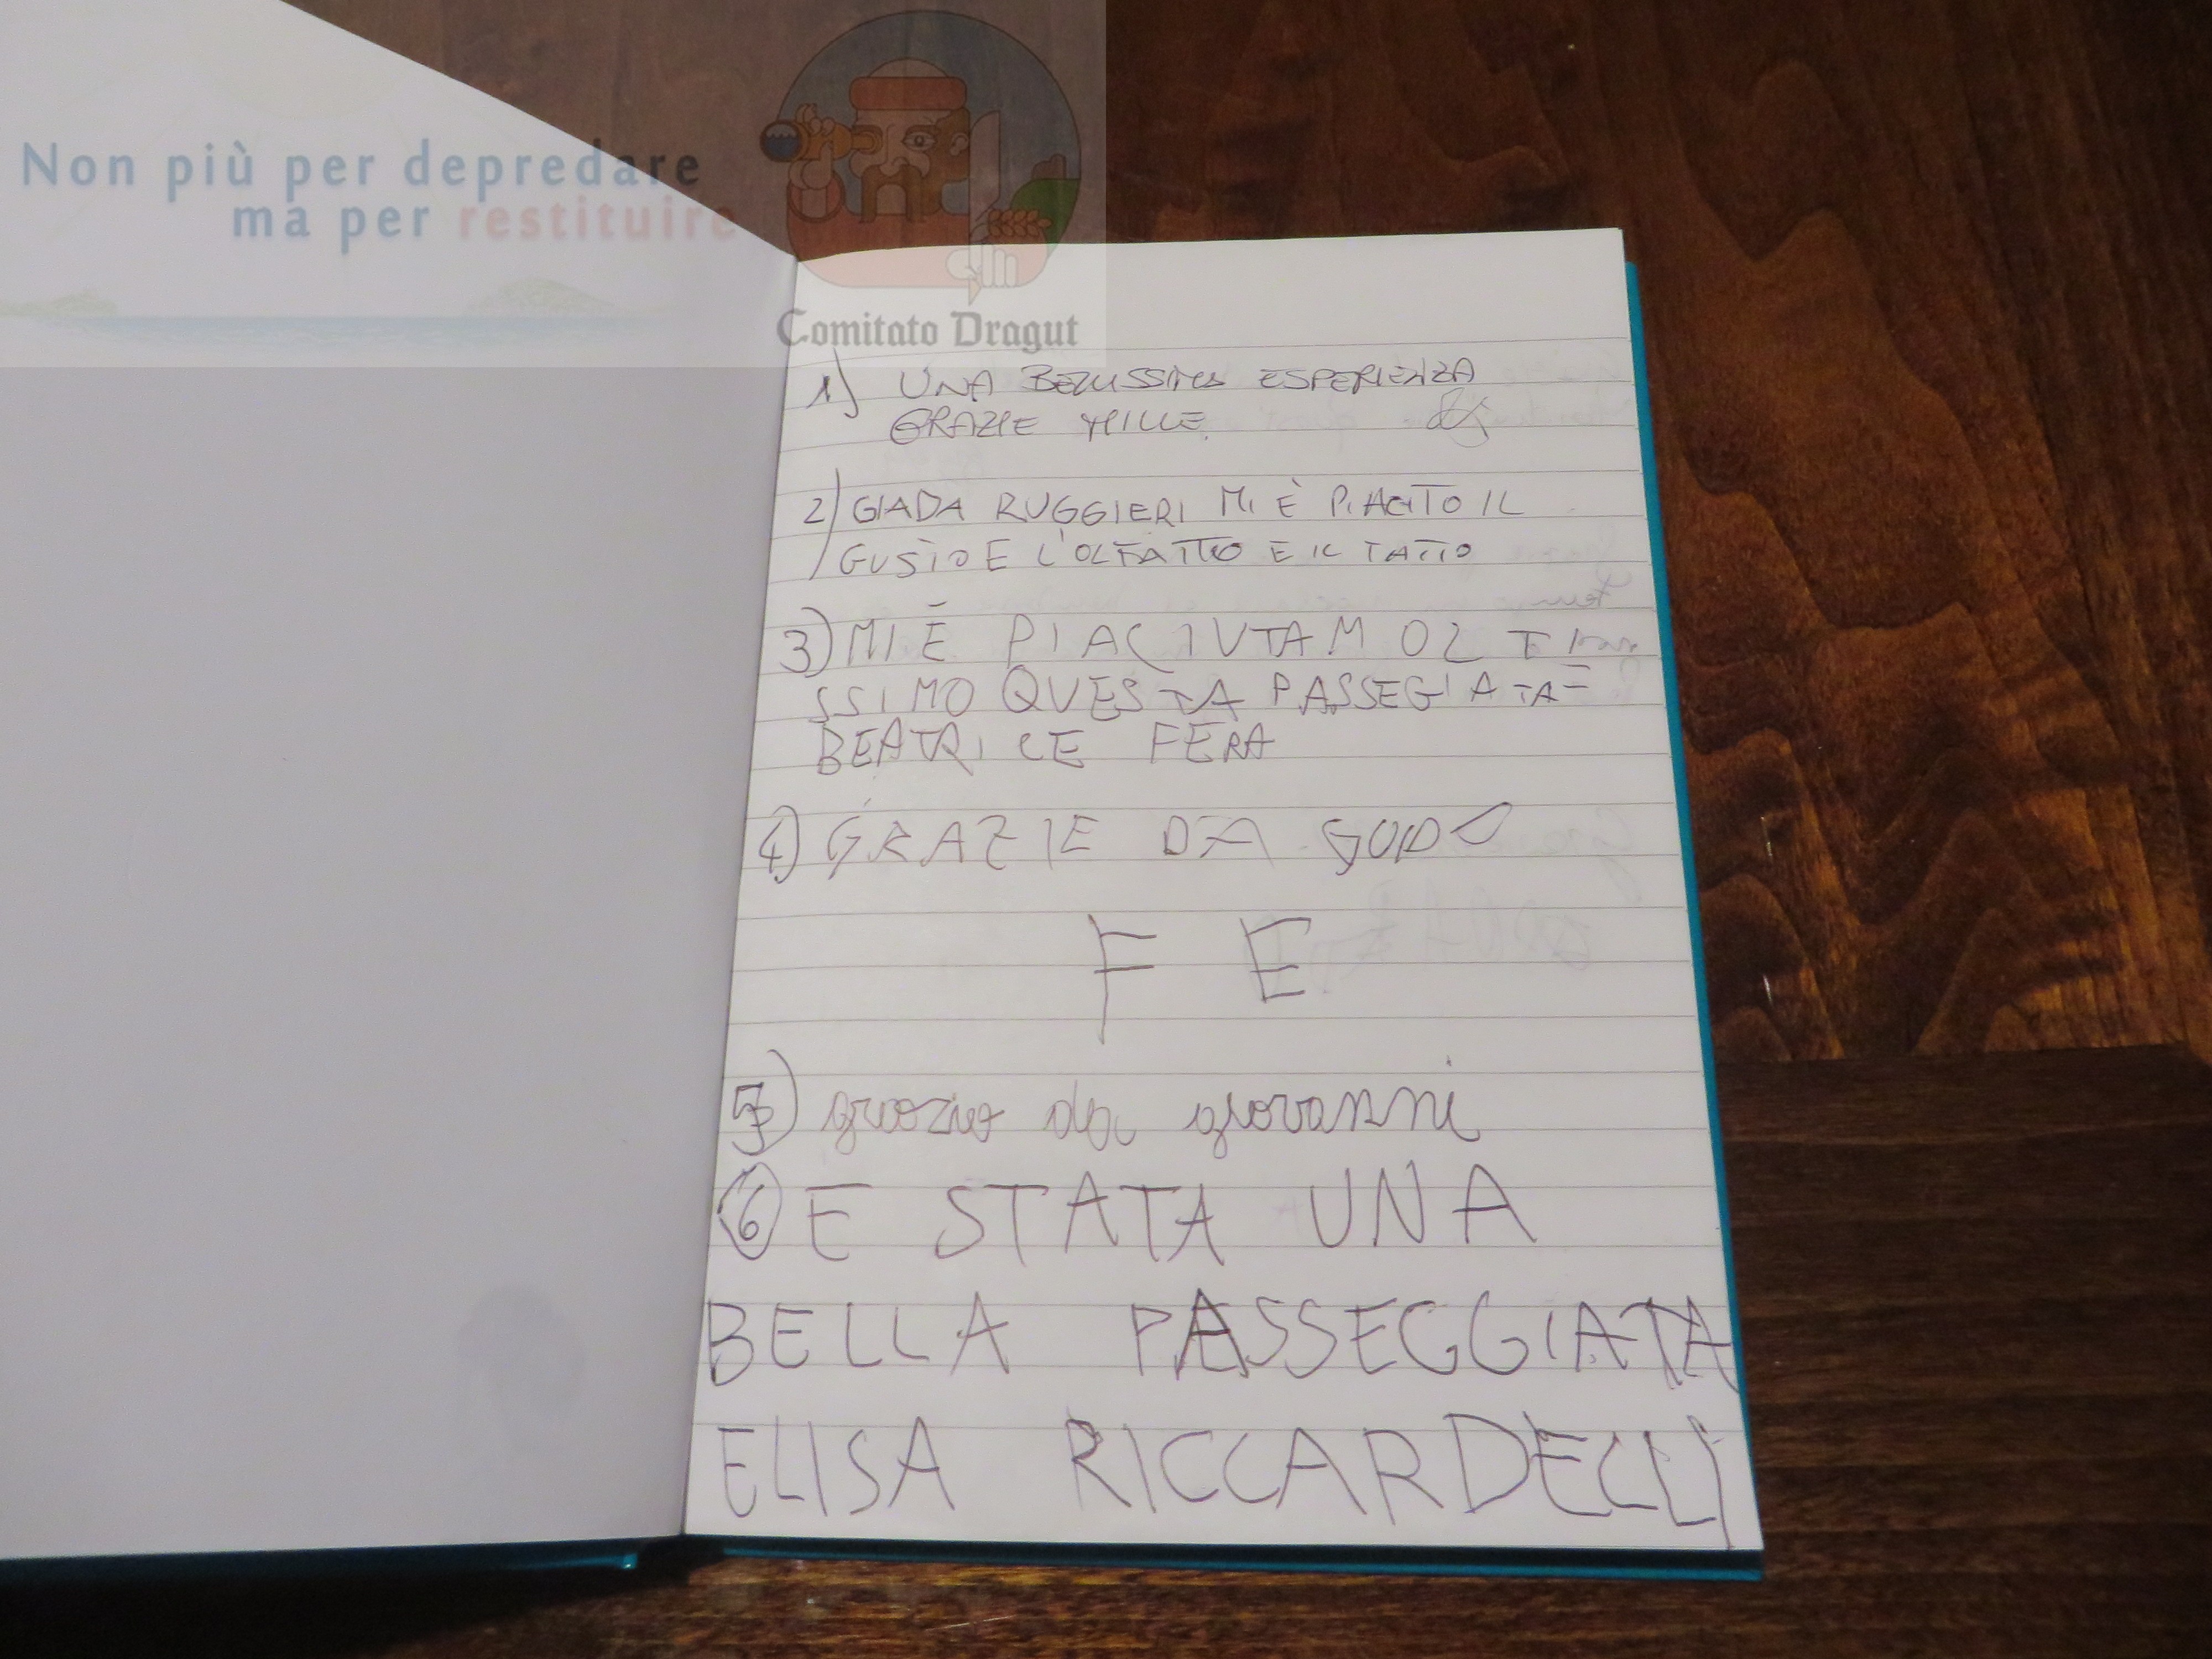 Non più per depredare
ma per restituire
Comitato Dragut
1) UNA BELLISSIMA ESPERIENZA
GRAZIE MILLE
2) GIADA RUGGIERI MI È PIACITO IL
GUSTO E L'OLFATTO E IL TATTO
3) MI È PIACIUTA MOLTI
SSIMO QUESTA PASSEGIATA
BEATRICE FERA
4) GRAZIE DA
F E
5) grazie da giovanni
6) E STATA UNA
BELLA PASSEGGIATA
ELISA RICCARDELLI